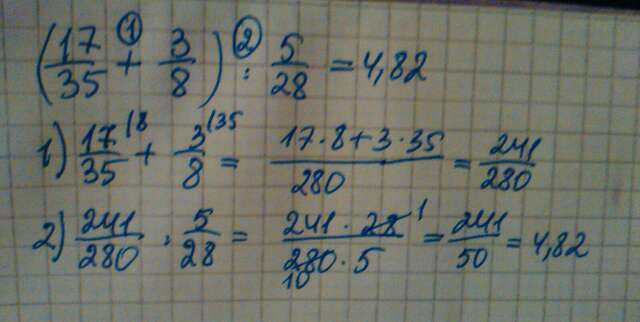 (17/35 + ① 3/8) : ② 5/28 = 4,82
1) 17/35 |8 + 3/8 |35 = (17·8+3·35)/280 = 241/280
2) 241/280 : 5/28 = (241·28 1)/(280·5 10) = 241/50 = 4,82